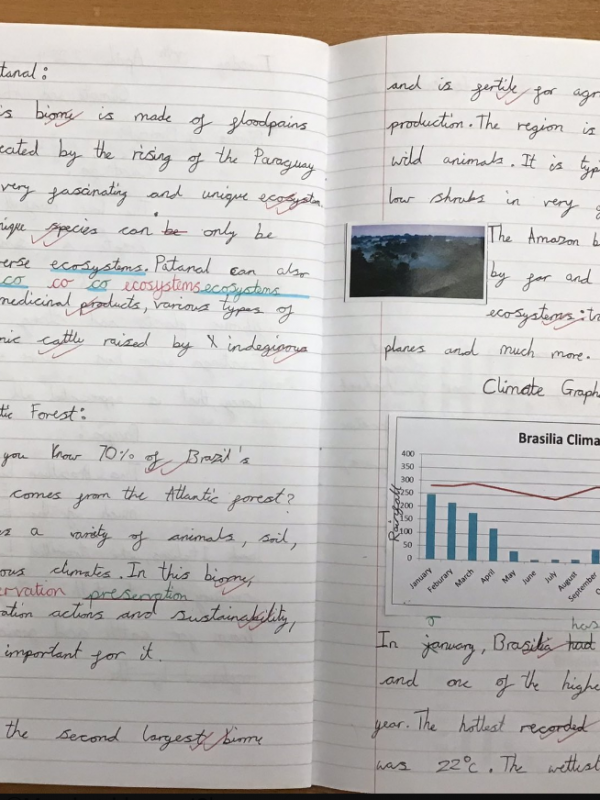 tanal:
is biome is made of floodpains
eated by the rising of the Paraguay
very fascinating and unique ecosystem.
nique species can be only be
erse ecosystems. Patanal can also
co co co ecosystems ecosystems
medicinal products, various types of
nic cattle raised by X indeginous
tic Forest:
you know 70% of Brazil's
comes from the Atlantic forest?
as a variety of animals, soil,
ous climates. In this biome,
ervation preservation
ration actions and sustainability,
important for it.
the second largest biome
and is fertile for agr
production. The region is
wild animals. It is typi
low shrubs in very
The Amazon b
by far and
ecosystems: tr
planes and much more.
Climate Graph
Brasilia Clima
400
350
300
250
200
150
100
50
0
Rainfall
January
Feburary
March
April
May
June
July
August
September
J
has
In january, Brasilia had
and one of the highe
year. The hottest recorded
was 22°C. The wettest